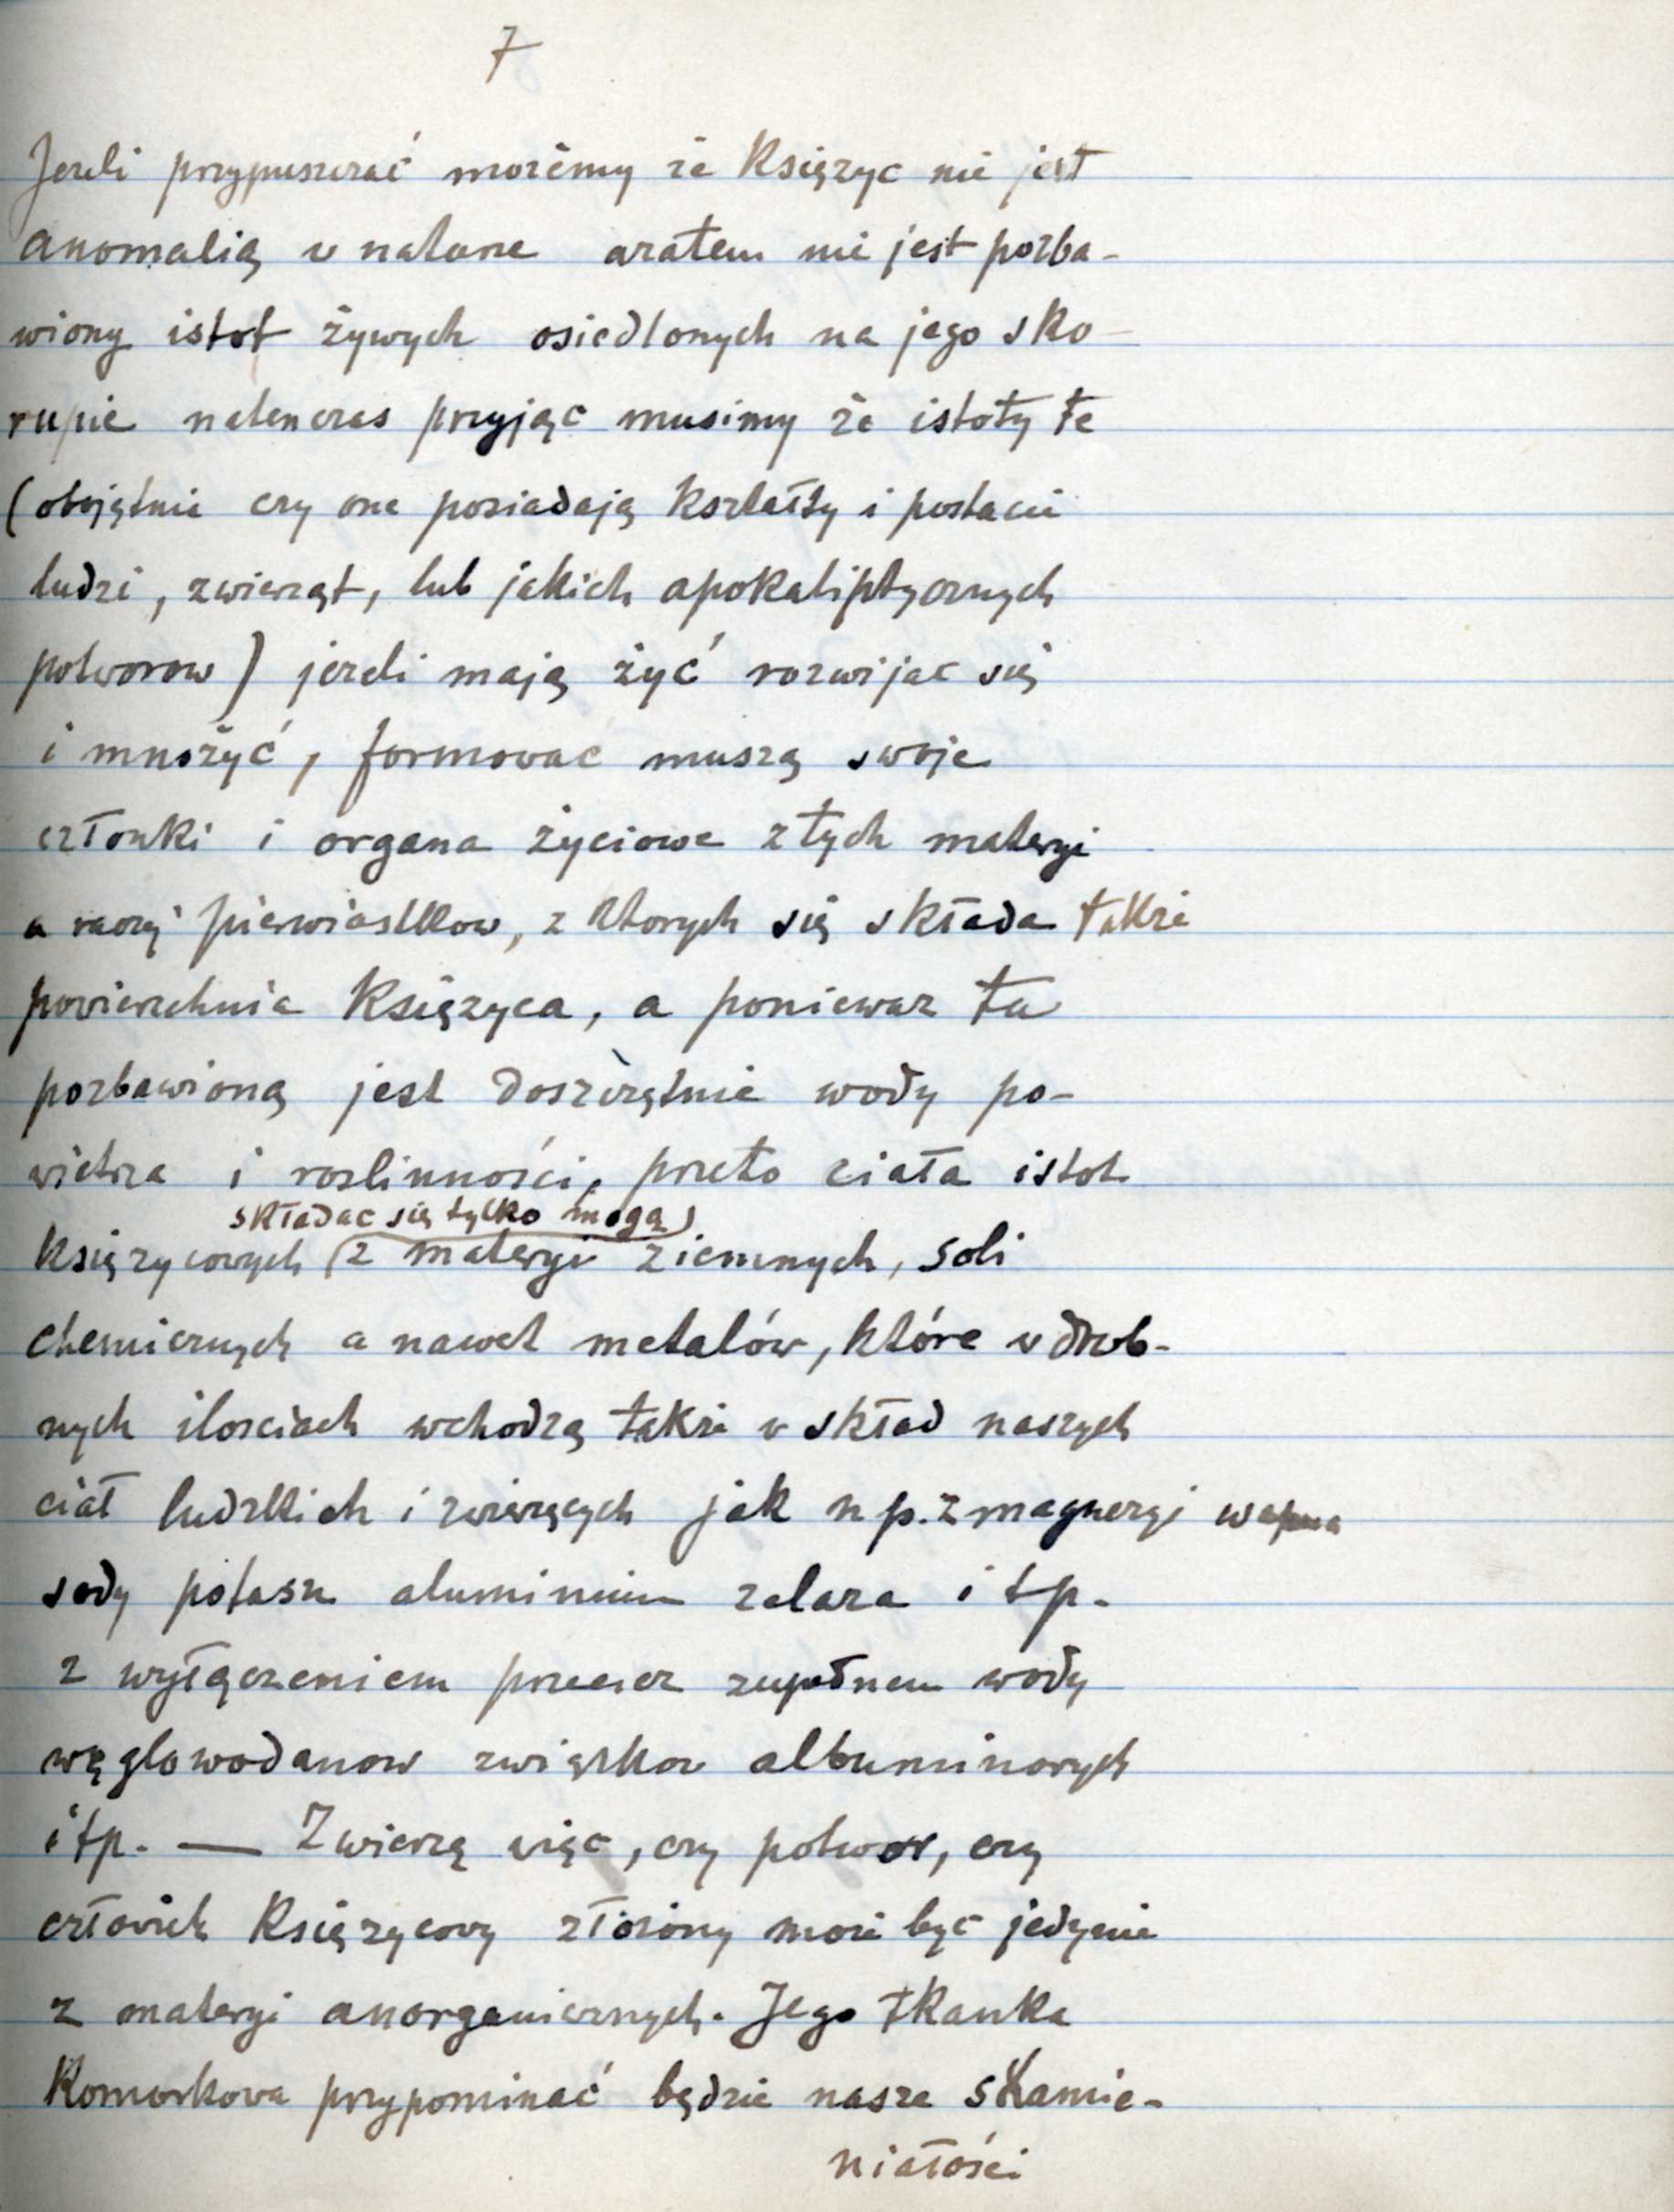 7
Jezeli przypuszczać możemy że Księzyc nie jest
anomalią w naturze azatem nie jest pozba-
wiony istot żywych osiedlonych na jego sko-
rupie natenczas przyjąc musimy że istoty te
(obojętnie czy one posiadają kształty i postacie
ludzi, zwierząt, lub jakich apokaliptycznych
potworow) jezeli mają żyć rozwijac się
i mnożyć, formowac muszą swoje
członki i organa życiowe z tych materyi
a raczej pierwiastkow, z ktorych się składa takze
powierzchnia Księzyca, a poniewaz ta
pozbawioną jest doszczętnie wody po-
wietrza i roslinności, przeto ciała istot
składac się tylko mogą
księzycowych (z materyi ziemnych, soli
chemicznych a nawet metalów, które w drob-
nych ilosciach wchodzą takze w skład naszych
ciał ludzkich i zwierzęcych jak n p. z magnezyi wapna
sody potasu aluminium zelaza i tp.
z wyłączeniem przeciez zupełnem wody
węglowodanow związkow albuminowych
i tp. — Zwierzę więc, czy potwor, czy
człowiek Księzycowy złozony moze być jedynie
z materyi anorganicznych. Jego tkanka
Komorkowa przypominać będzie nasze skamie-
niałości